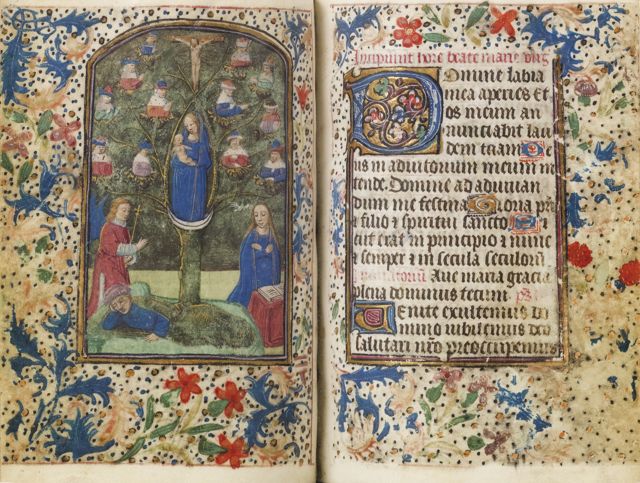 Incipiunt hore beate marie virg
Domine labia
mea aperies Et
os meum an
nunciabit lau
dem tuam De
us in adiutorium meum in
tende. Domine ad adiuuan
dum me festina Gloria pri
et filio et spiritui sancto Si
cut erat in principio et nunc
et semper et in secula seculorum
Aue maria gracia
plena dominus tecum. ps
Uenite exultemus do
mino iubilemus deo
salutari nro preoccupemus